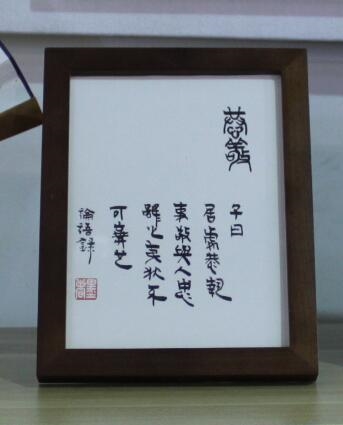 慈敬
子曰
居處恭執
事敬與人忠
雖之夷狄不
可棄也
論語錄